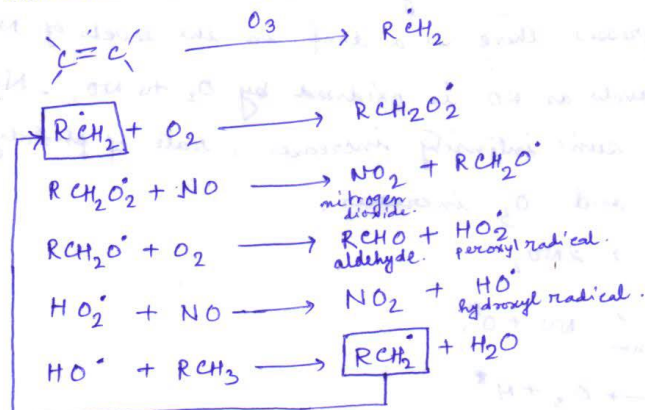 C=C O3 → RĊH2
RĊH2 + O2 → RCH2O2•
RCH2O2• + NO → NO2 + RCH2O•
nitrogen dioxide.
RCH2O• + O2 → RCHO + HO2•
aldehyde. peroxyl radical.
HO2• + NO → NO2 + HO•
hydroxyl radical.
HO• + RCH3 → RCH2• + H2O